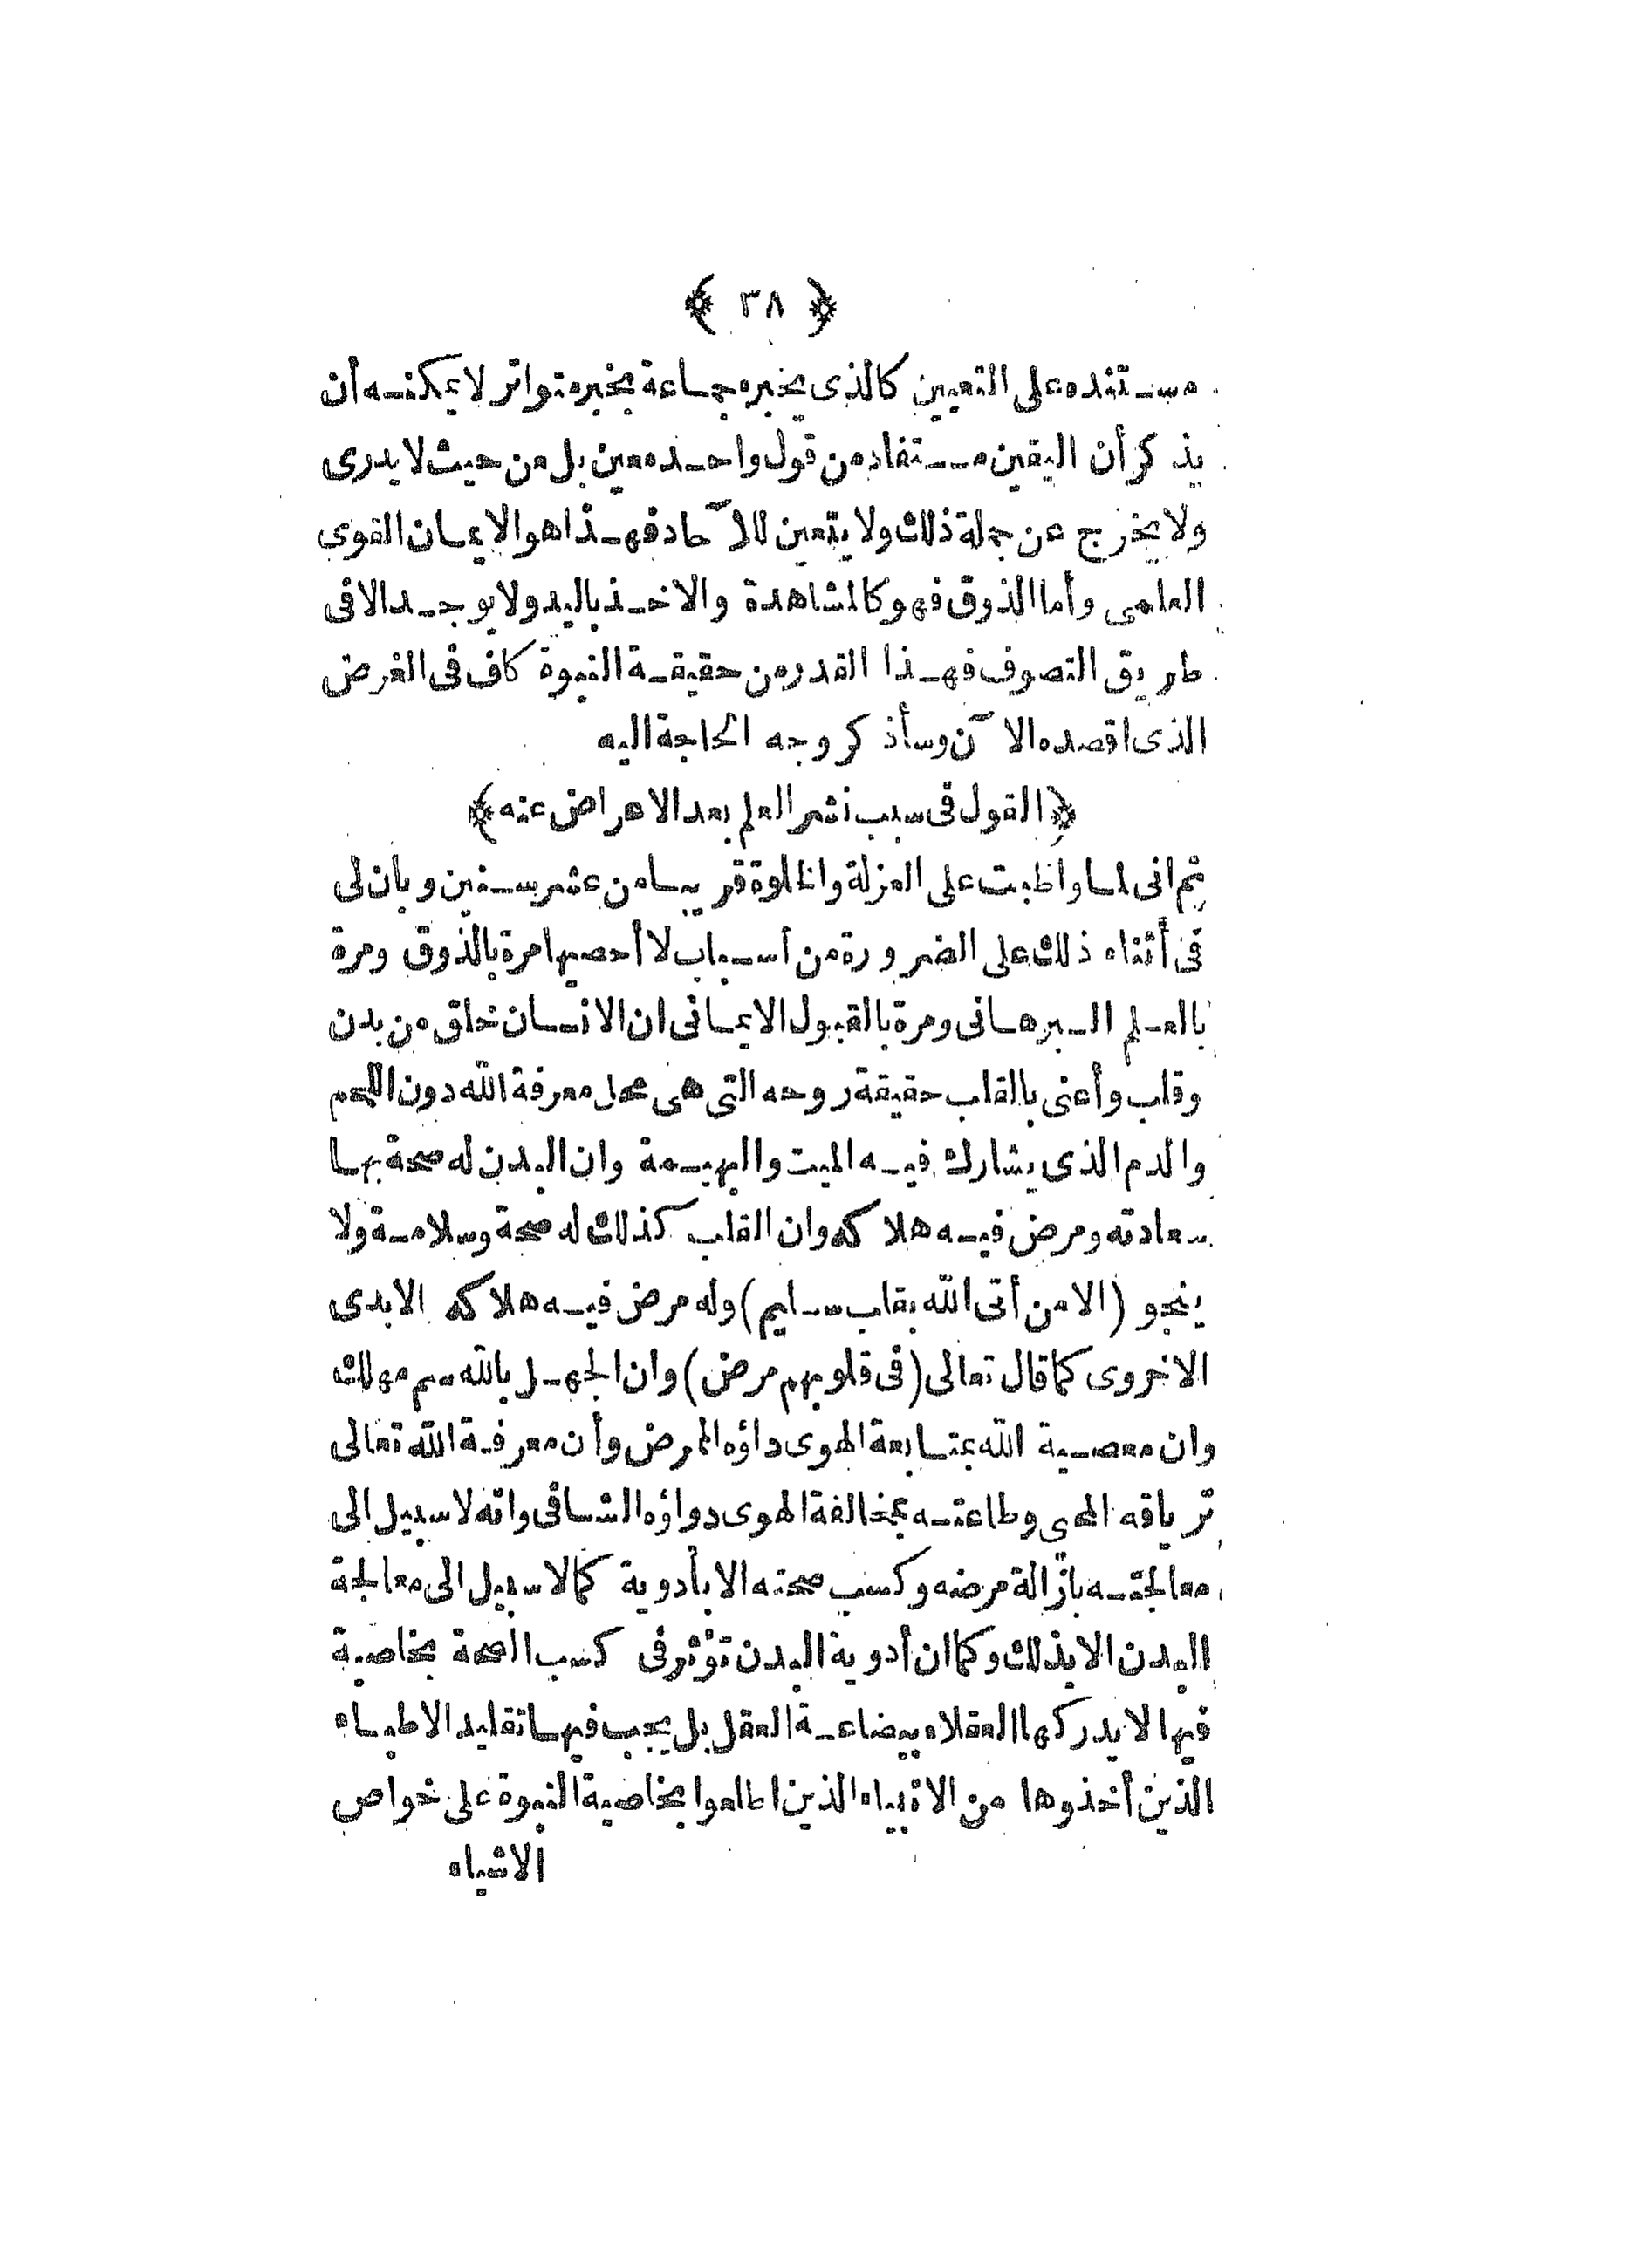 ﴿ ٣٨ ﴾
مستنده على التعيين كالذى يخبره جماعة بخبر متواتر لا يمكنه أن
يذكر أن اليقين مستفاد من قول واحد معين بل من حيث لا يدرى
ولا يخرج عن جملة ذلك ولا يتعين للآحاد فهذا هو الايمان القوى
العلمى وأما الذوق فهو كالمشاهدة والاخذ باليد ولا يوجد الا فى
طريق التصوف فهذا القدر من حقيقة النبوة كاف فى الغرض
الذى اقصده الآن وسأذكر وجه الحاجة اليه
﴿القول فى سبب نشر العلم بعد الاعراض عنه﴾
ثم انى لما واظبت على العزلة والخلوة قريبا من عشر سنين وبان لى
فى أثناء ذلك على الضرورة من أسباب لا أحصيها مرة بالذوق ومرة
بالعلم البرهانى ومرة بالقبول الايمانى ان الانسان خلق من بدن
وقلب وأعنى بالقلب حقيقة روحه التى هى محل معرفة الله دون اللحم
والدم الذى يشارك فيه الميت والبهيمة وان البدن له صحة بها
سعادته ومرض فيه هلاكه وان القلب كذلك له صحة وسلامة ولا
ينجو (الا من أتى الله بقلب سليم) وله مرض فيه هلاكه الابدى
الاخروى كما قال تعالى (فى قلوبهم مرض) وان الجهل بالله سم مهلك
وان معصية الله بمتابعة الهوى داؤه الممرض وأن معرفة الله تعالى
ترياقه المحى وطاعته بمخالفة الهوى دواؤه الشافى وانه لا سبيل الى
معالجته بازالة مرضه وكسب صحته الا بأدوية كما لا سبيل الى معالجة
البدن الا بذلك وكما ان أدوية البدن تؤثر فى كسب الصحة بخاصية
فيها لا يدركها العقلاء ببضاعة العقل بل يجب فيها تقليد الاطباء
الذين أخذوها من الانبياء الذين اطلعوا بخاصية النبوة على خواص
الاشياء